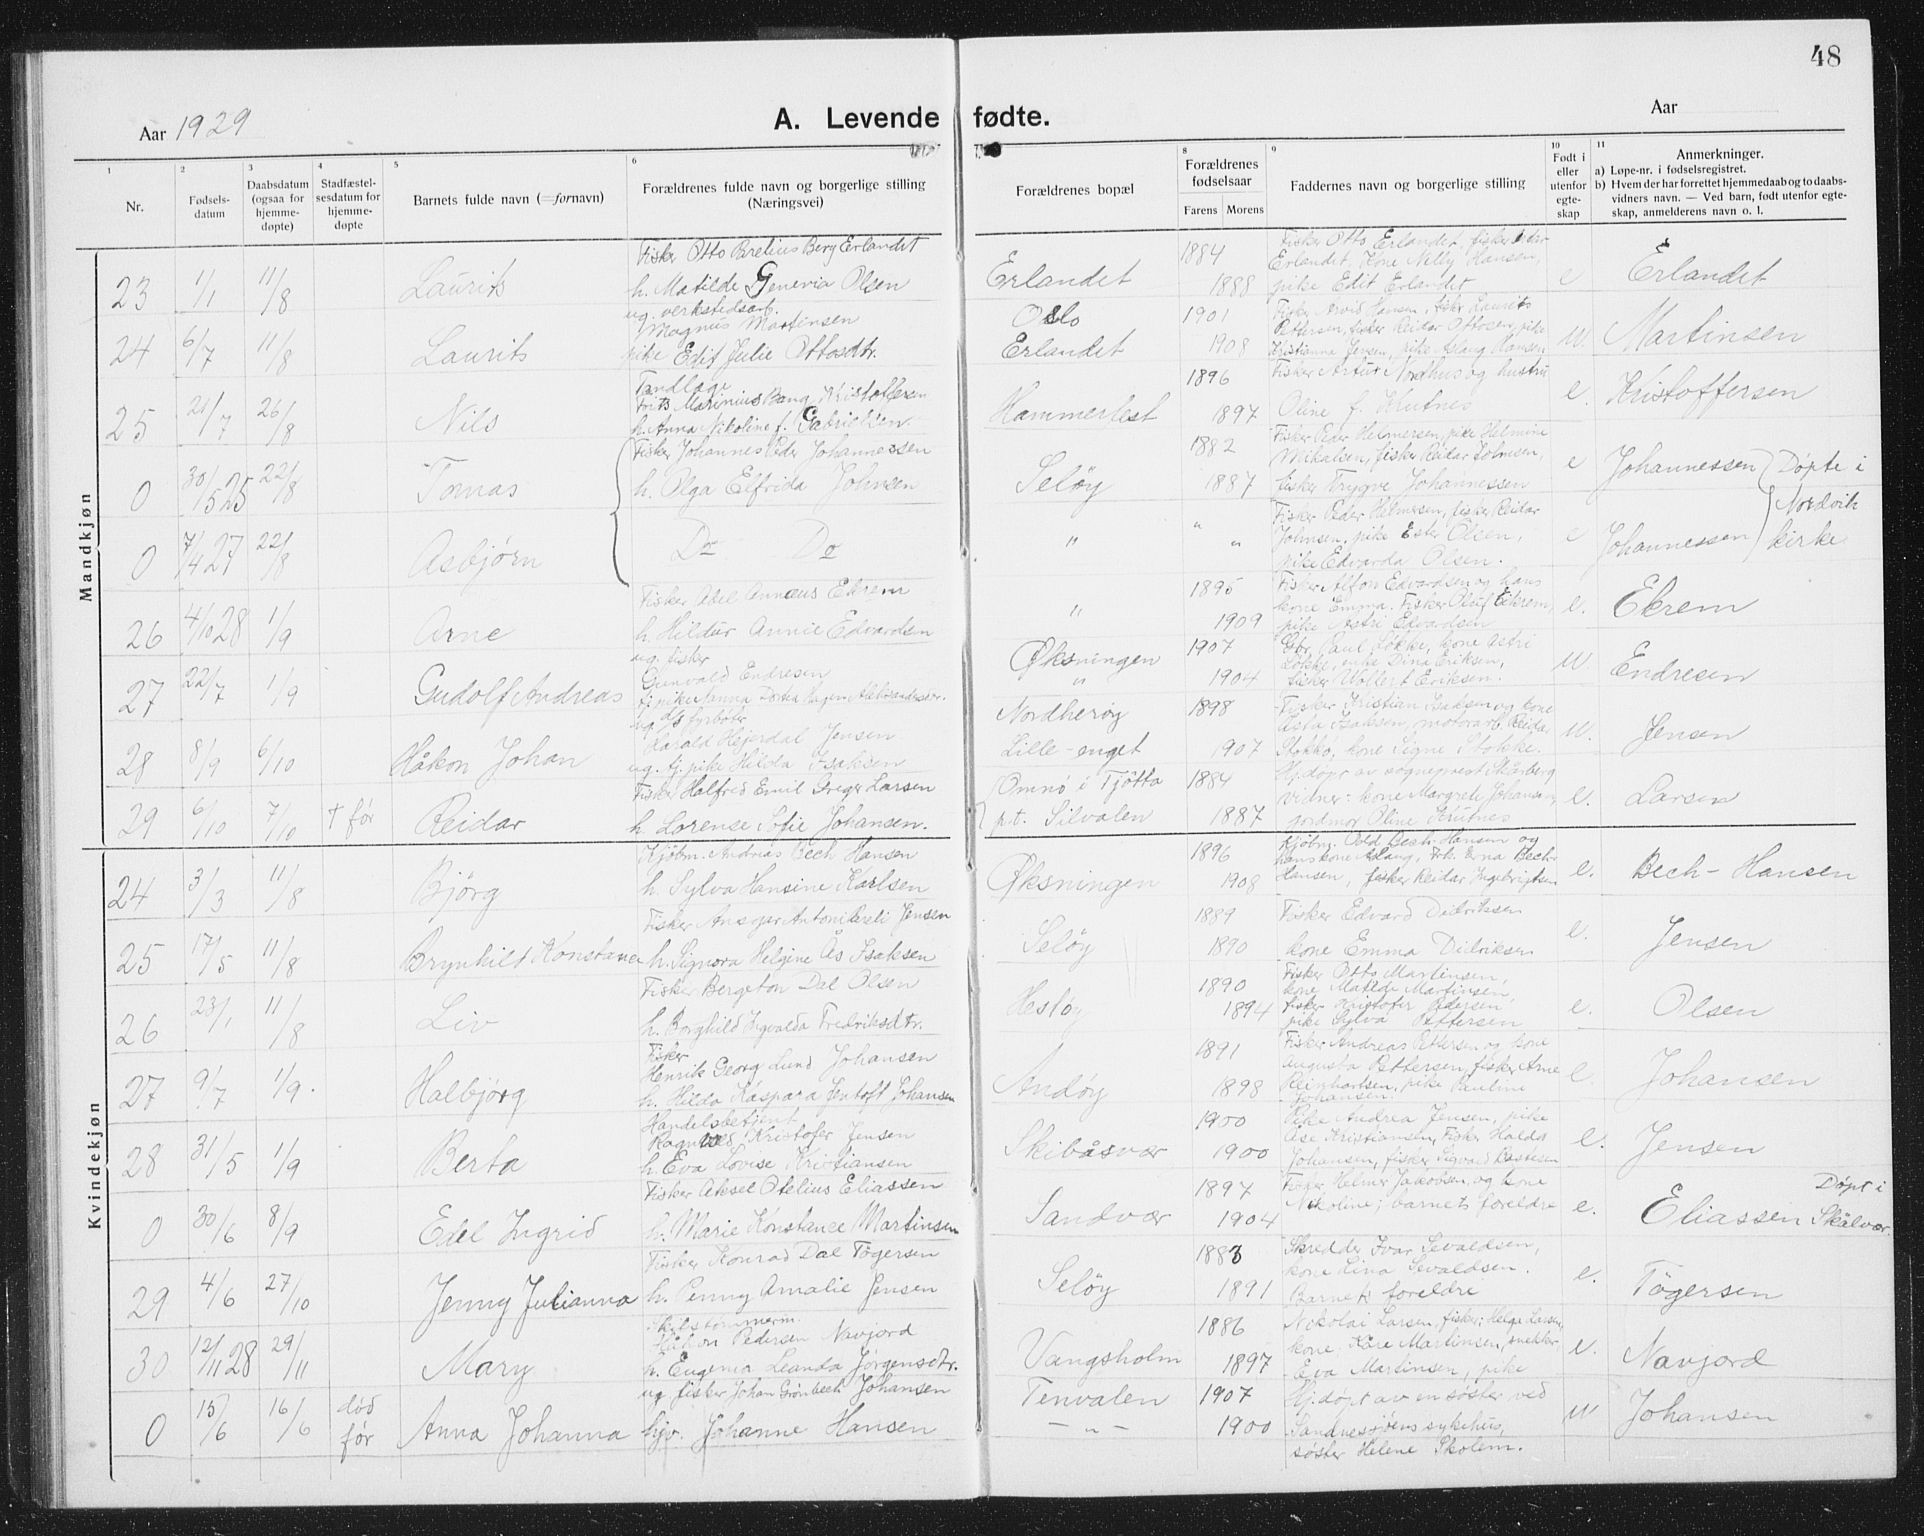 48
Aar 1929
A. Levende fødte.
Aar
1 2 3 4 5 6 8 9 10 11
Nr.
Fødsels-
datum
Daabsdatum
(ogsaa for
hjemme-
døpte)
Stadfæstel-
sesdatum for
hjemme-
døpte
Barnets fulde navn (=fornavn)
Forældrenes fulde navn og borgerlige stilling
(Næringsvei)
Forældrenes bopæl
Forældrenes
fødselsaar
Farens Morens
Faddernes navn og borgerlige stilling
Født i
eller
utenfor
egte-
skap
Anmerkninger.
a) Løpe-nr. i fødselsregistret.
b) Hvem der har forrettet hjemmedaab og to daabs-
vidners navn. — Ved barn, født utenfor egte-
skap, anmelderens navn o. l.
Mandkjøn
Fisker Otto Brelius Berg Erlandet
23 1/1 11/8 Laurits h. Matilde Genevia Olsen
Erlandet 1884 1888
Fisker Otto Erlandet, fisker
Erlandet, kone Nelly Hansen,
pike Edit Erlandet
e Erlandet
ug. verkstedsarb.
Magnus Martinsen
24 6/7 11/8 Laurits pike Edit Julie Ottosdtr.
Oslo 1901
Erlandet 1908
Fisker Arvid Hansen, fisker Laurits
Pettersen, fisker Reidar Ottosen, pike
Kristianna Jensen, pike Aslaug Hansen
u. Martinsen
Tandlæge
Frits Marinius Bang Kristoffersen
25 21/7 26/8 Nils h. Anna Nikoline f. Gabrielsen.
Hammerfest 1896 1897
Fisker Artur Nordhus og hustru
Oline f. Knutnes
e. Kristoffersen
Fisker Johannes Peder Johannessen
0 30/5 25 22/8 Tomas h. Olga Elfrida Johnsen
Seløy 1882 1887
Fisker Peder Helmersen, pike Helmine
Mikalsen, fisker Reidar Johnsen,
fisker Trygve Johannessen
e Johannessen
Døpte i
Nordvik
kirke
0 7/4 27 22/8 Asbjørn Do Do
" " "
Fisker Peder Helmersen, fisker Reidar
Johnsen, pike Ester Olsen,
pike Edvarda Olsen.
e Johannessen
Fisker Abel Annæus Ekrem
26 4/10 28 1/9 Arne h. Hildur Annie Edvardsen
" 1895 1909
Fisker Alfon Edvardsen og hans
kone Emma. Fisker Oluf Eikrem,
pike Astri Edvardsen
e. Ekrem
ug. fisker
Gunvald Endresen
27 22/7 1/9 Gudolf Andreas
Øksningen 1907
" 1904
Gbr. Paul Løkke, kone Astri
Løkke, enke Dina Eriksen,
fisker Wollert Eriksen.
u Endresen
ug. d/s fyrbøter
Harald Hejerdal Jensen
28 8/9 6/10 Håkon Johan ug. tj. pike Hilda Isaksen
Nordherøy 1898
Lille-enget 1907
Fisker Kristian Isaksen og kone
Asta Isaksen, motorarb. Reidar
Stokko, kone Signe Stokke.
u. Jensen
Fisker Halfred Emil Greger Larsen
29 6/10 7/10 † før Reidar h. Lorense Sofie Johansen.
Omnø i Tjøtta 1884
p.t. Silvalen 1887
Hj.døpt av sogneprest Skårberg
vidner: kone Margrete Johansen,
jordmor Oline Knutnes
e. Larsen
Kvindekjøn
Kjøbm. Andreas Bech Hansen
24 3/3 11/8 Bjørg h. Sylva Hansine Karlsen
Øksningen 1896 1908
Kjøbm. Odd Bech-Hansen og
hans kone Aslaug, frk. Erna Bech-
Hansen, fisker Reidar Ingebrigtsen
e. Bech-Hansen
Fisker Ansgar Antoni Pareli Jensen
25 17/5 11/8 Brynhild Konstance h. Signora Helgine Ås Isaksen
Seløy 1889 1890
Fisker Edvard Didriksen
kone Emma Didriksen
e. Jensen
Fisker Bergeton Dal Olsen
26 23/1 11/8 Liv h. Borghild Ingvalda Fredriksdtr.
Hestøy 1890 1894
Fisker Otto Martinsen
kone Matilde Martinsen
fisker Kristofer Pedersen
pike Sylva Pettersen
e. Olsen
Fisker
Henrik Georg Lund Johansen
27 9/7 1/9. Halbjørg h. Hilda Kaspara Jentoft Johansen
Andøy 1891 1898
Fisker Andreas Pettersen og kone
Augusta Pettersen, fisker Arne
Reinhartsen, pike Pauline
Johansen.
e. Johansen
Handelsbetjent
Ragnvald Kristofer Jensen
28 31/5 1/9 Berta h. Eva Lovise Kristiansen
Skibåsvær 1900 1900
Pike Andrea Jensen, pike
Åse Kristiansen, fisker Haldo
Johansen, fisker Sigvald Bastesen
e. Jensen
Fisker Aksel Otelius Eliassen
0 30/6 8/9 Edel Ingrid h. Marie Konstance Martinsen
Sandvær 1897 1904
Fisker Helmer Jakobsen, og kone
Nikoline; barnets foreldre
e. Eliassen
Døpt i
Skålvær.
Fisker Konrad Dal Tøgersen
29 4/6 27/10 Jenny Julianna h. Penny Amalie Jensen
Seløy 1883 1891
Skredder Ivar Sevaldsen,
kone Lina Sevaldsen.
Barnets foreldre
e. Tøgersen
Skibstømmerm.
Håkon Pedersen Navjord
30 12/11 28 29/11 Mary h. Eugenia Leanda Jørgensdtr.
Vangsholm 1886 1897
Nikolai Larsen, fisker; Helga Larsen,
kone; Kåre Martinsen, snekker
Eva Martinsen, pike
e. Navjord
ug. fisker Johan Grønbech Johansen
0 15/6 16/6 død før Anna Johanna hjv. Johanne Hansen
Tenvalen 1907
— " — 1900
Hj.døpt av en søster ved
Sandnesjøens sykehus,
søster Helene Skolem.
u Johansen